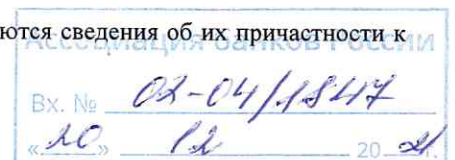 ются сведения об их причастности к
Ассоциация банков России
Вх. № 02-04/1847
«20» 12 2021